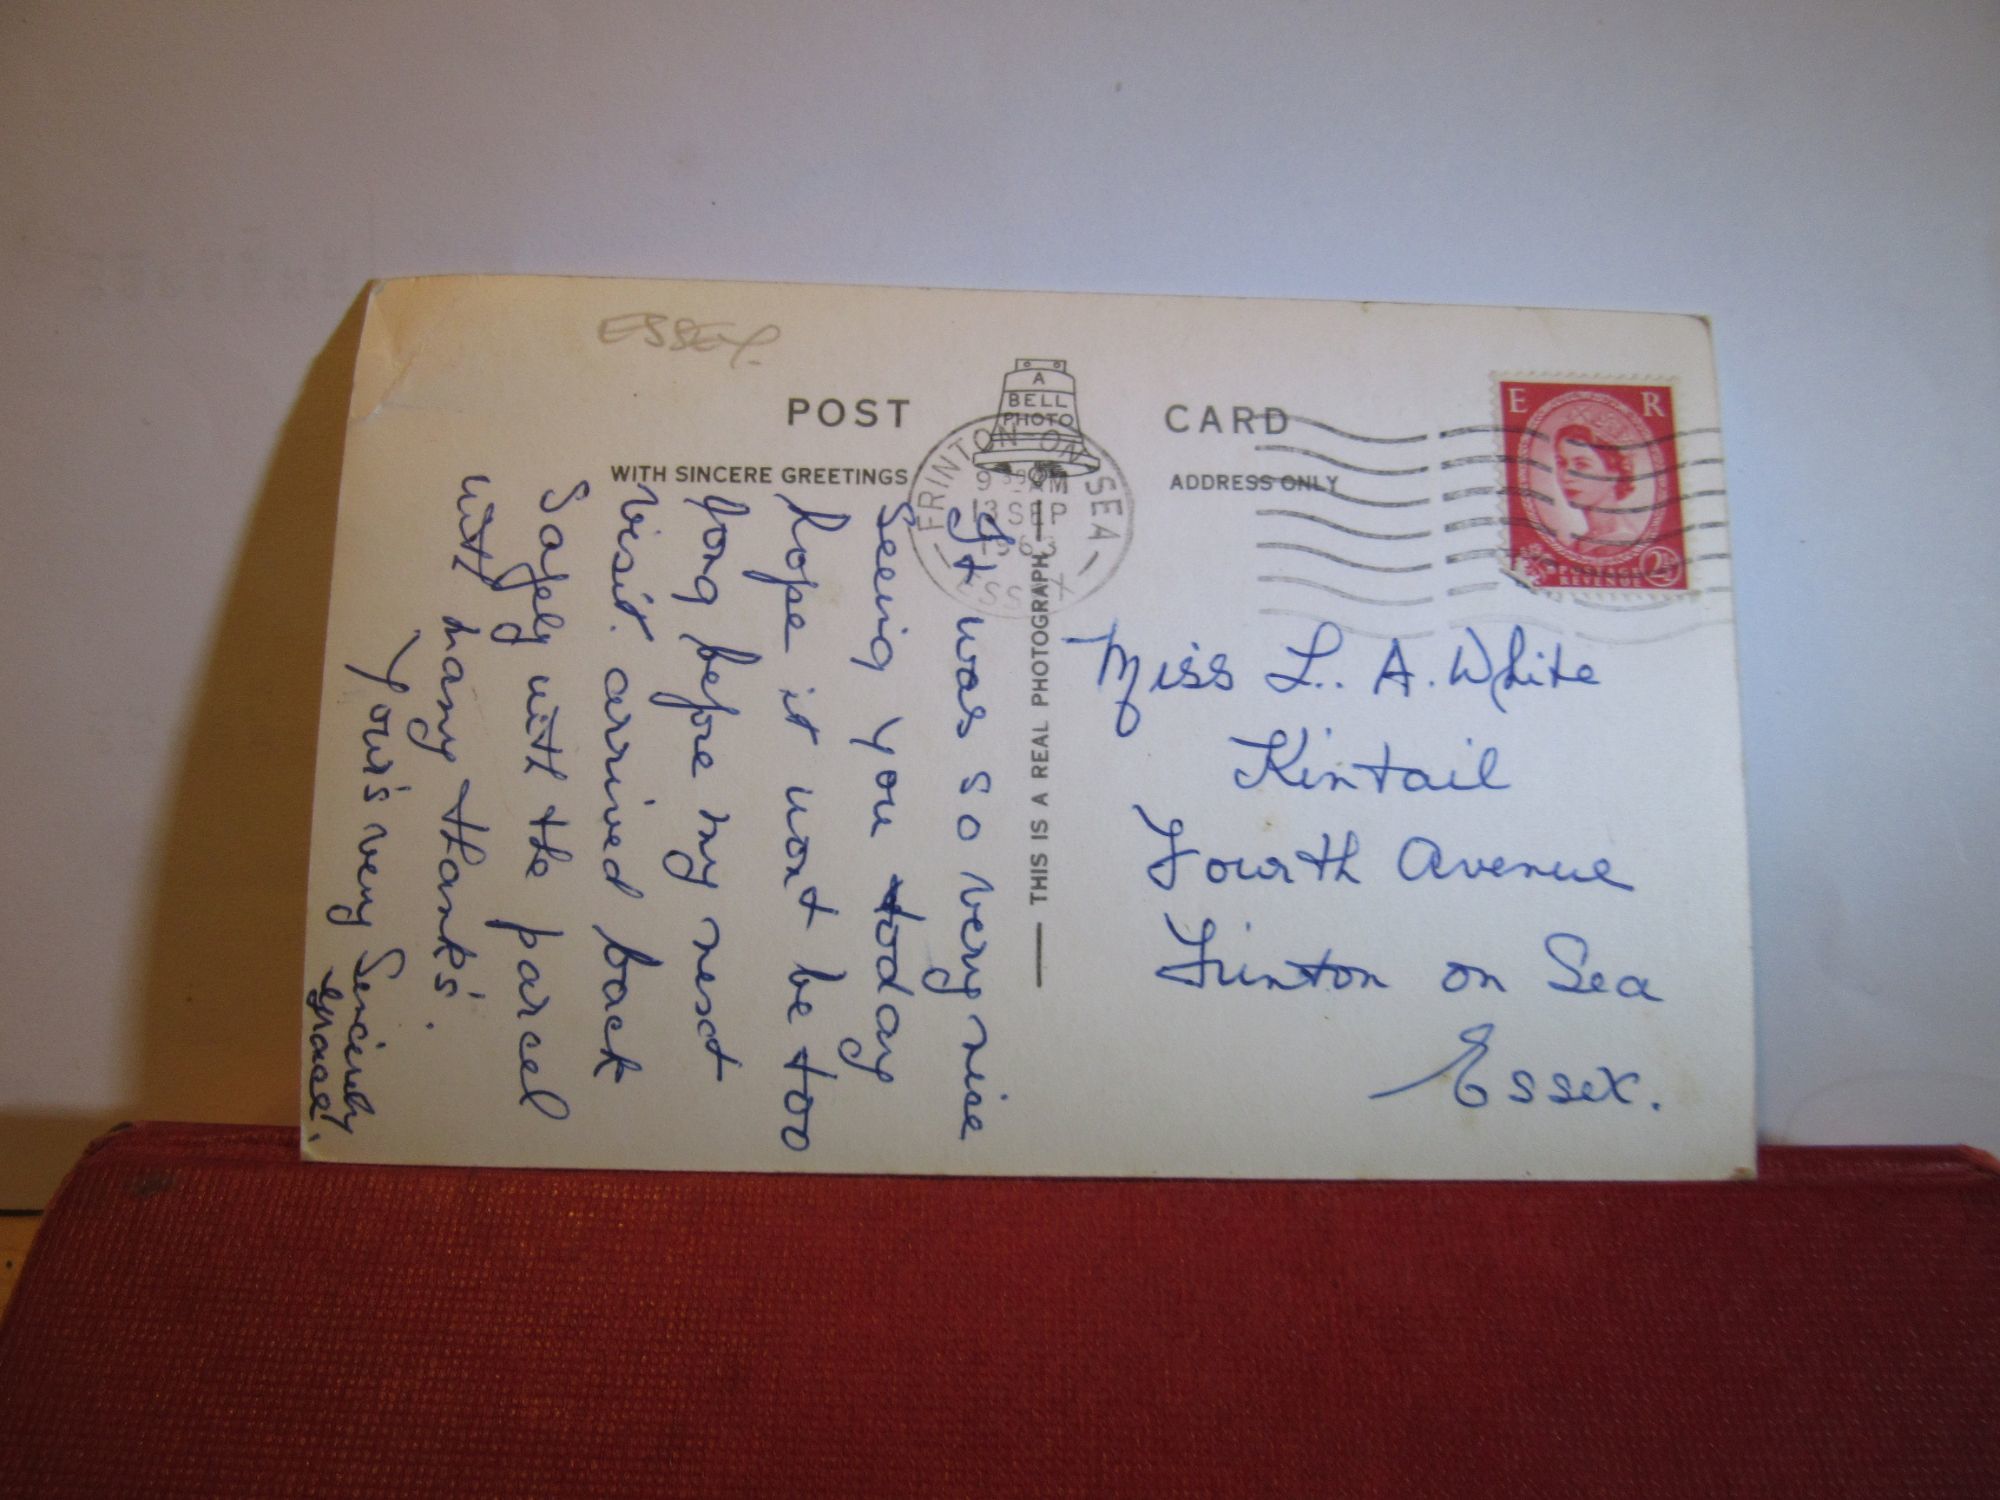 ESSEX.
POST CARD
A
BELL
PHOTO
WITH SINCERE GREETINGS
ADDRESS ONLY
FRINTON ON SEA
9 AM
13 SEP
1963
ESSEX
E R
POSTAGE
REVENUE
2½
THIS IS A REAL PHOTOGRAPH
It was so very nice
Seeing you today
hope it wont be too
long before my next
visit. arrived back
Safely with the parcel
with many thank's.
Your's very Sincerely
Grace.
Miss L. A. White
Kintail
Fourth Avenue
Frinton on Sea
Essex.